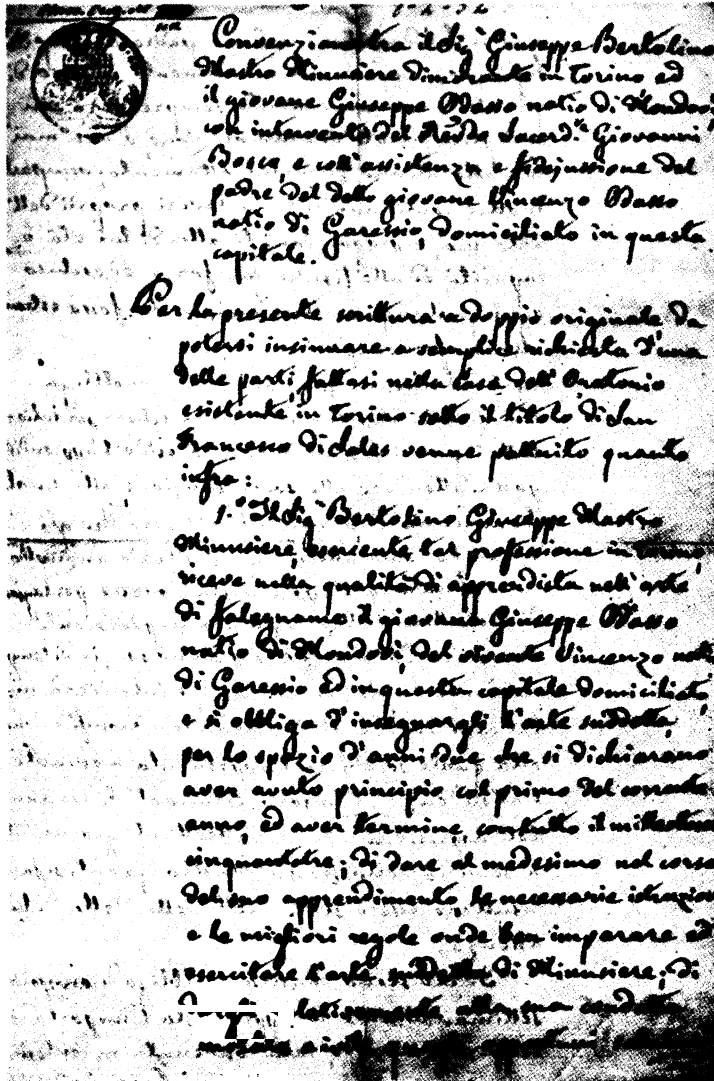 Convenzione tra il Sig.r Giuseppe Bertolino
Mastro Minusiere dimorante in Torino ed
il giovane Giuseppe Odasso natio di Mondovì,
con intervento del Rev.do Sacerd.te Giovanni
Bosco, e coll'assistenza e fidejussione del
padre del detto giovane Vincenzo Odasso
natio di Garessio, domiciliato in questa
capitale.
Per la presente scrittura a doppio originale da
potersi insinuare a semplice richiesta d'una
delle parti, fattasi nella Casa dell'Oratorio
esistente in Torino sotto il titolo di San
Francesco di Sales venne pattuito quanto
infra:
1.° Il Sig.r Bertolino Giuseppe Mastro
Minusiere, esercente tal professione in Torino,
riceve nella qualità di apprendista nell'arte
di falegname il giovane Giuseppe Odasso
natio di Mondovì, del vivente Vincenzo natio
di Garessio ed in questa capitale domiciliato,
e si obbliga d'insegnargli l'arte suddetta,
per lo spazio d'anni due che si dichiarano
aver avuto principio col primo del corrente
anno, ed aver termine con tutto il
cinquantatre; di dare al medesimo nel corso
del suo apprendimento, le necessarie istruzioni
e le migliori regole onde ben imparare ed
esercitare l'arte suddetta di Minusiere; di
condotta